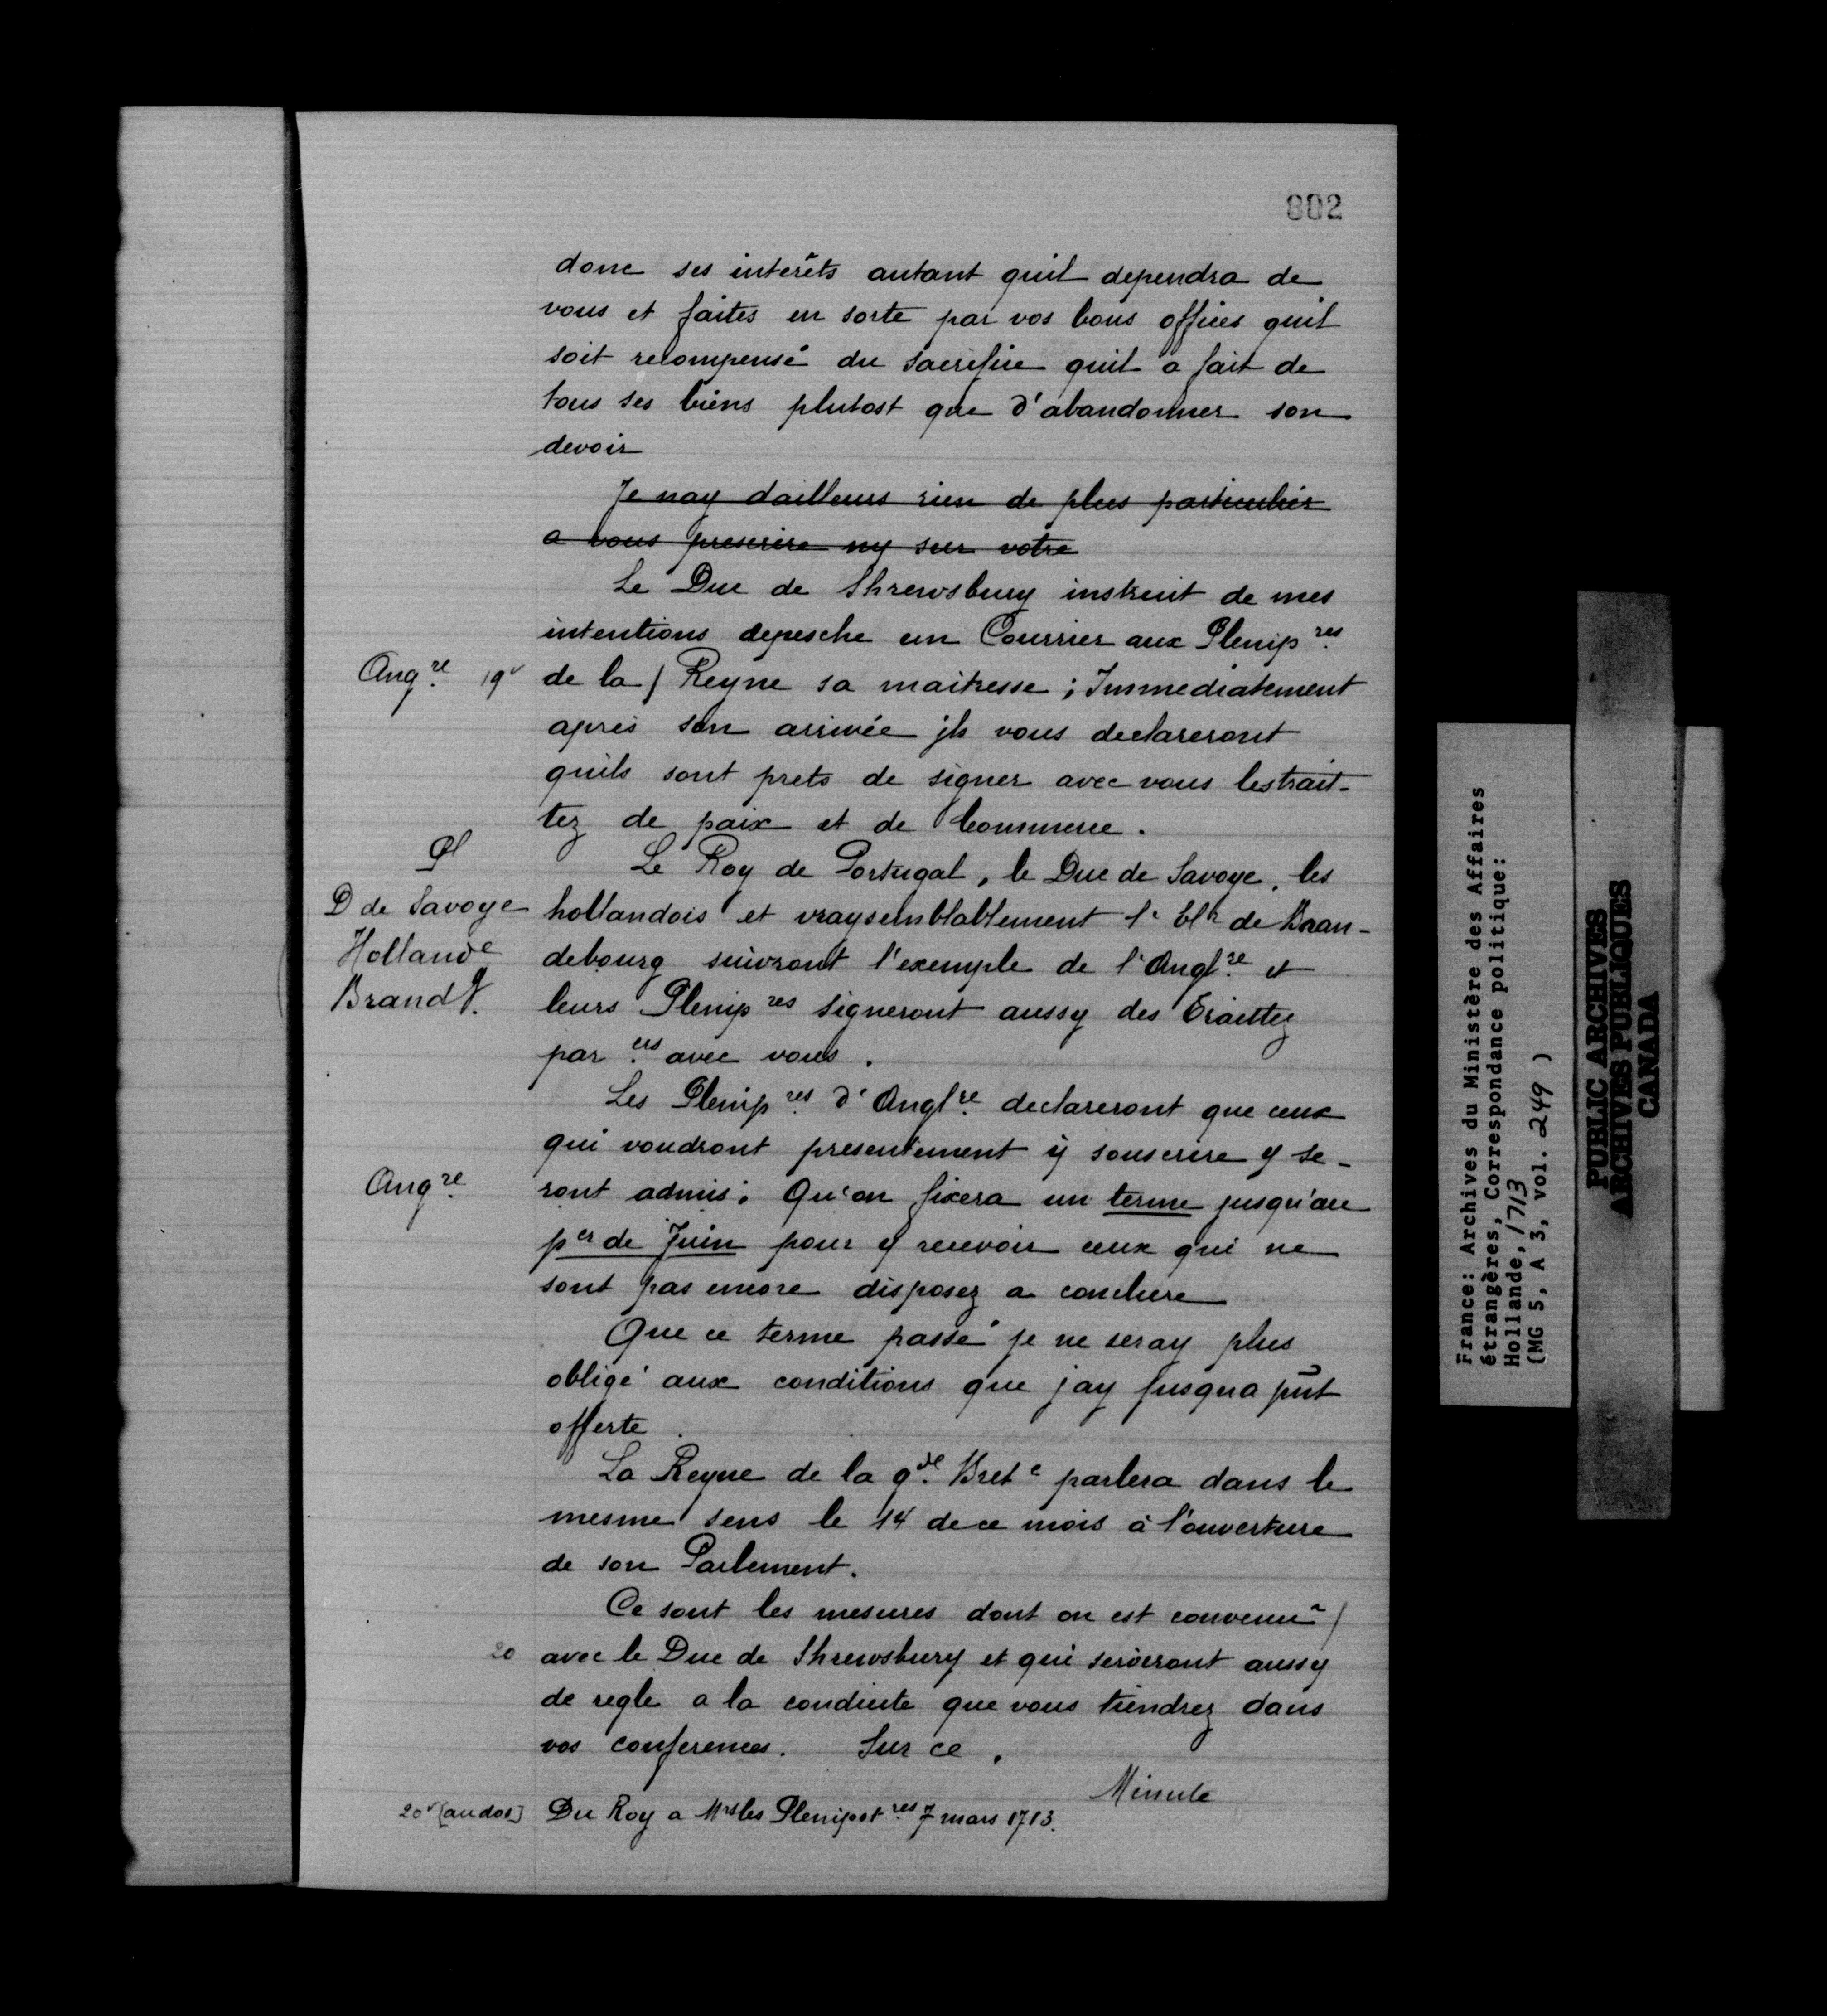 802
donc ses interêts autant quil dependra de
vous et faites en sorte par vos bons offices quil
soit recompensé du sacrifice quil a fait de
tous ses biens plutost que d'abandonner son
devoir
Je nay dailleurs rien de plus particulier
a vous prescrire ny sur votre
Le Duc de Shrewsbury instruit de mes
intentions depesche un Courrier aux Plenip.res
Ang.re 19v de la / Reyne sa maitresse ; Immediatement
après son arrivée jls vous declareront
quils sont prets de signer avec vous les trait-
tez de paix et de Commerce.
Pl
Le Roy de Portugal, le Duc de Savoye, les
D de Savoye hollandois et vraysemblablement l'Elr de Bran-
Hollande debourg suivront l'exemple de l'Angl.re et
Brand g. leurs Plenip res signeront aussy des Traittez
par.ers avec vous.
Les Plenip.res d'Angl.re declareront que ceux
qui voudront presentement y souscrire y se-
Ang.re ront admis ; Qu'on fixera un terme jusqu'au
per de Juin pour y recevoir ceux qui ne
sont pas encore disposez a conclure
Que ce terme passé je ne seray plus
obligé aux conditions que jay jusqua pnt
offerte.
La Reyne de la g.de Brete parlera dans le
mesme sens le 14 de ce mois à l'ouverture
de son Parlement.
Ce sont les mesures dont on est convenu /
20 avec le Duc de Shrewsbury et qui serviront aussy
de regle a la conduite que vous tiendrez dans
vos conferences. Sur ce.
Minute
20v [au dos] Du Roy a Mrs les Plenipot.res 7 mars 1713.
France: Archives du Ministère des Affaires
étrangères, Correspondance politique:
Hollande, 1713
(MG 5, A 3, vol. 249 )
PUBLIC ARCHIVES
ARCHIVES PUBLIQUES
CANADA